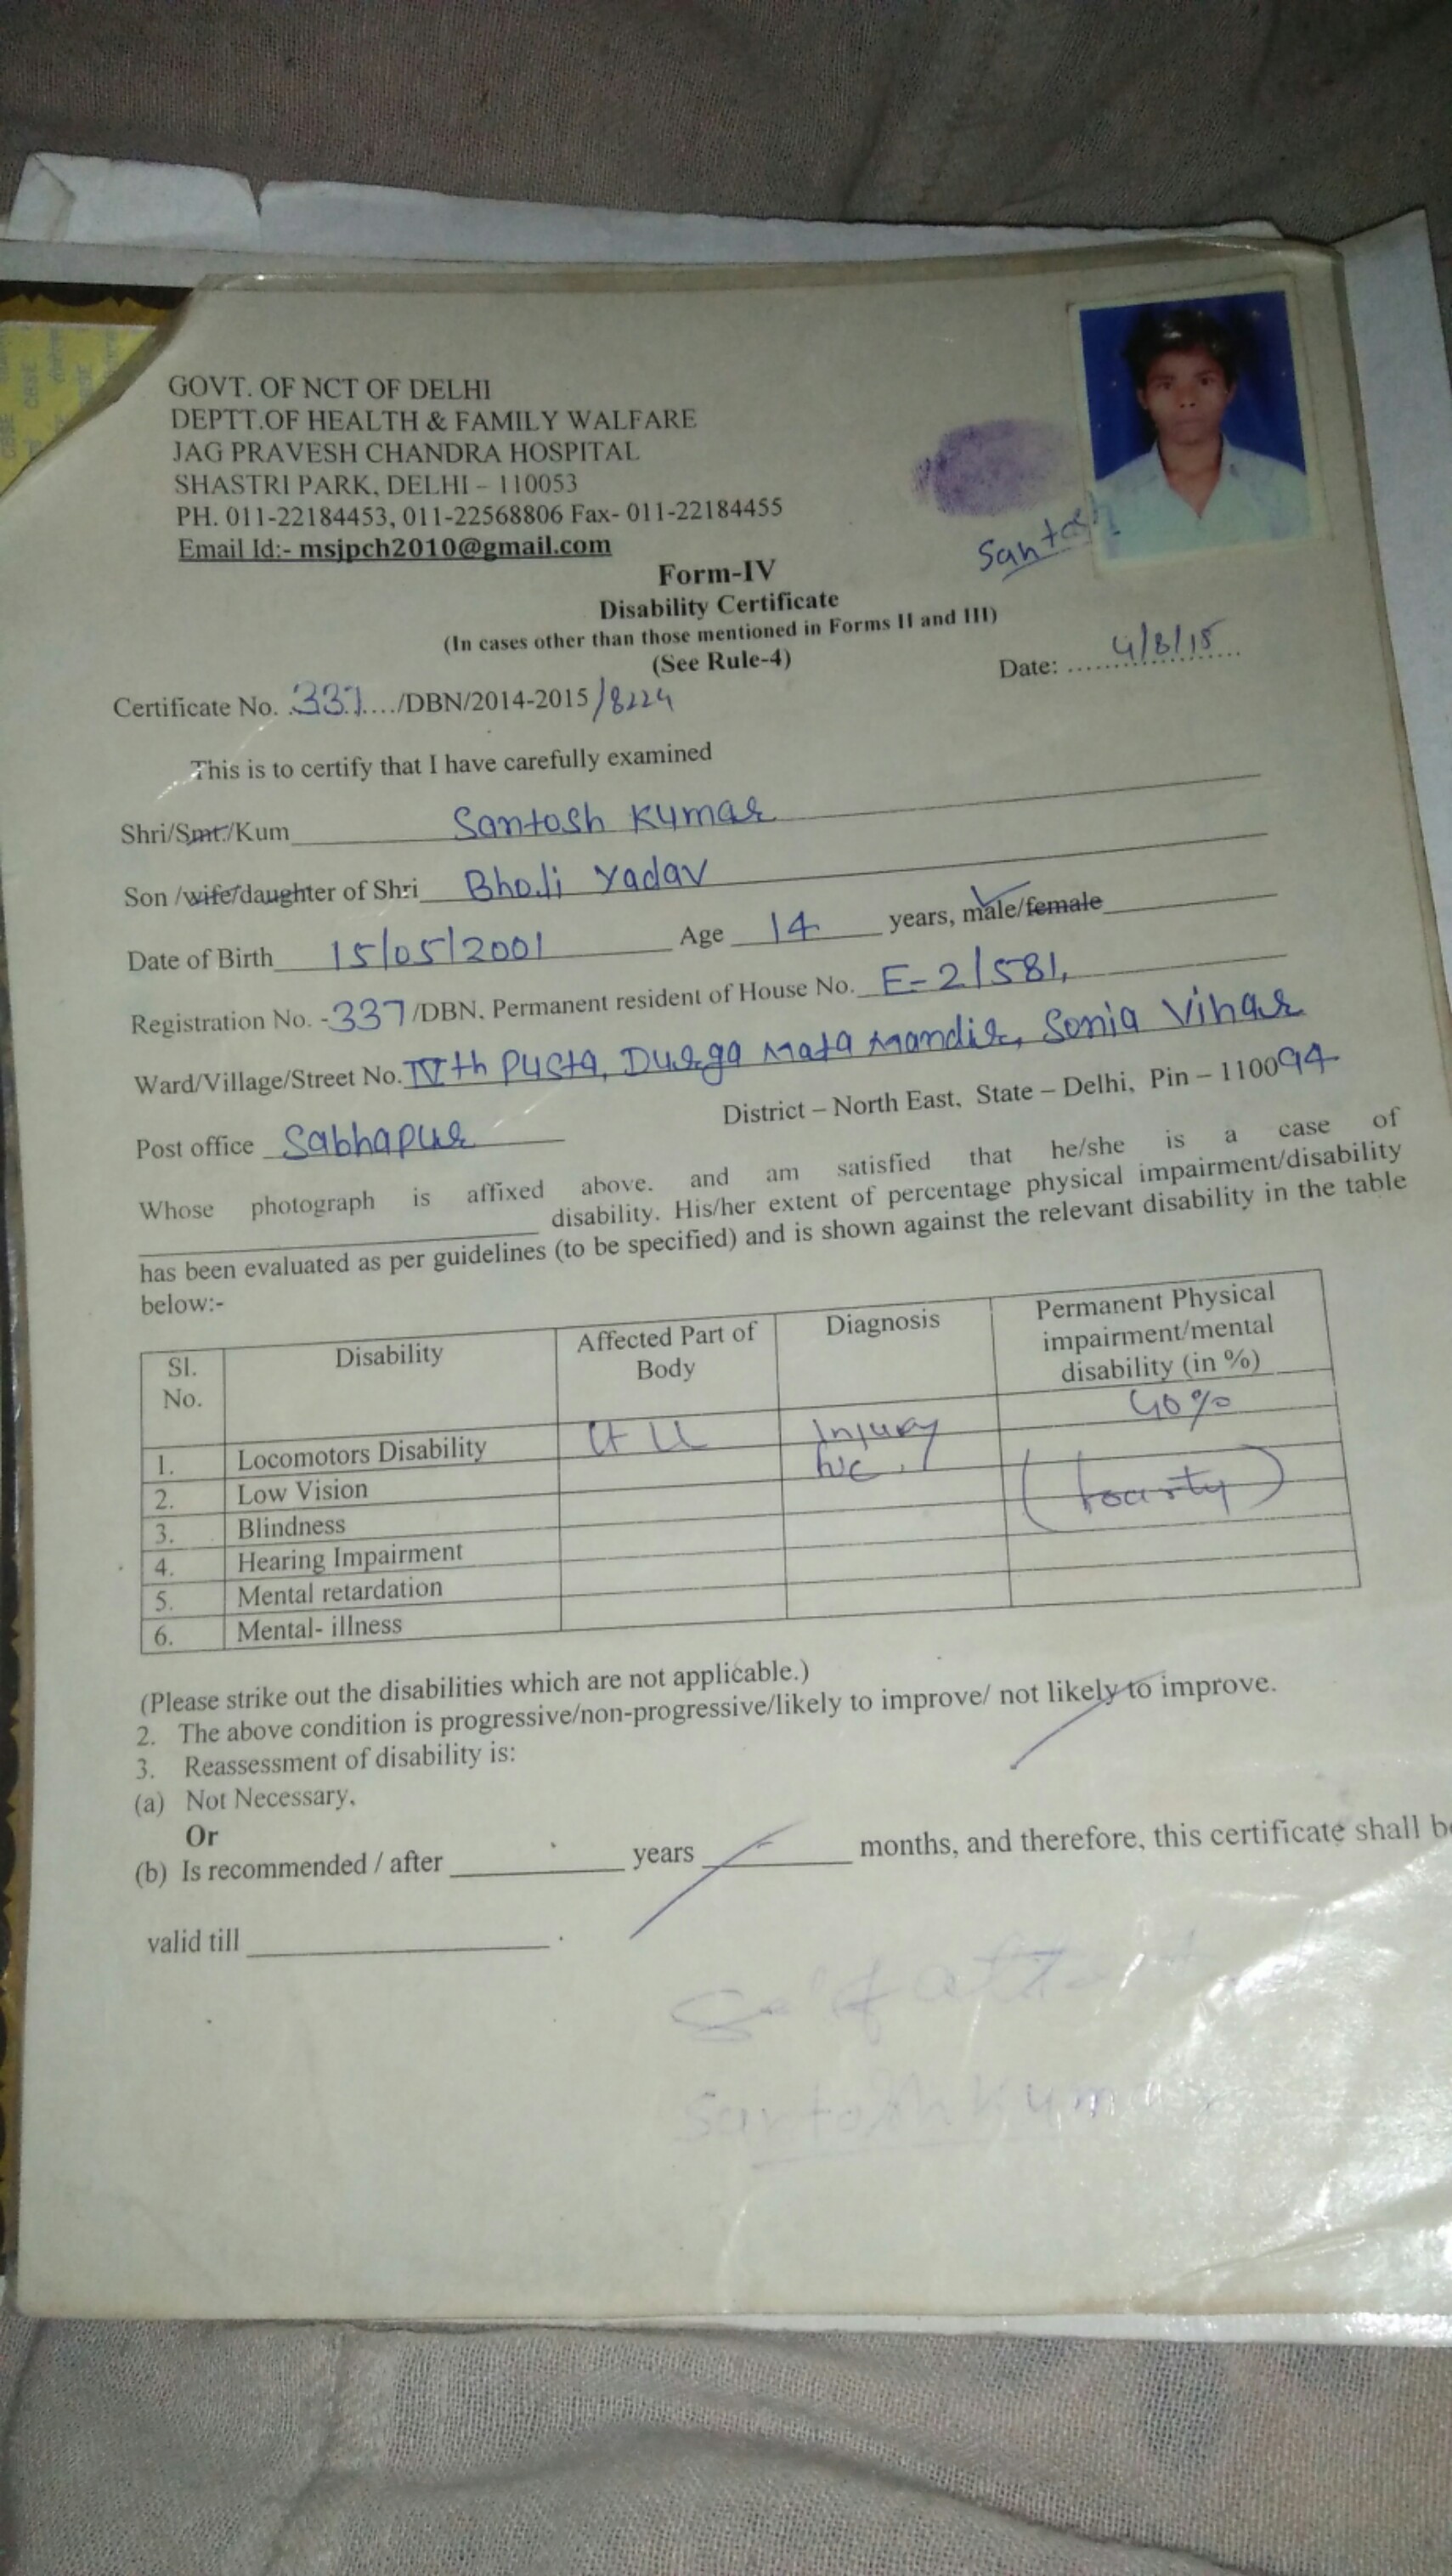 GOVT. OF NCT OF DELHI
DEPTT.OF HEALTH & FAMILY WALFARE
JAG PRAVESH CHANDRA HOSPITAL
SHASTRI PARK, DELHI – 110053
PH. 011-22184453, 011-22568806 Fax- 011-22184455
Email Id:- msjpch2010@gmail.com
Santosh
Form-IV
Disability Certificate
(In cases other than those mentioned in Forms II and III)
(See Rule-4)
Date: 4/8/15
Certificate No. 337..../DBN/2014-2015/8224
This is to certify that I have carefully examined
Shri/Smt./Kum Santosh Kumar
Son /wife/daughter of Shri Bhoji Yadav
Date of Birth 15/05/2001 Age 14 years, male/female
Registration No. -337/DBN. Permanent resident of House No. E-2/581,
Ward/Village/Street No. IVth Pusta, Durga Mata Mandir, Sonia Vihar
Post office Sabhapur District – North East, State – Delhi, Pin – 110094
Whose photograph is affixed above. and am satisfied that he/she is a case of
disability. His/her extent of percentage physical impairment/disability
has been evaluated as per guidelines (to be specified) and is shown against the relevant disability in the table
below:-
Sl. No. Disability Affected Part of Body Diagnosis Permanent Physical impairment/mental disability (in %)
1. Locomotors Disability Lt LL Injury 40%
2. Low Vision
3. Blindness
4. Hearing Impairment
5. Mental retardation
6. Mental- illness
(Please strike out the disabilities which are not applicable.)
2. The above condition is progressive/non-progressive/likely to improve/ not likely to improve.
3. Reassessment of disability is:
(a) Not Necessary,
Or
(b) Is recommended / after years months, and therefore, this certificate shall
valid till
Santosh Kumar